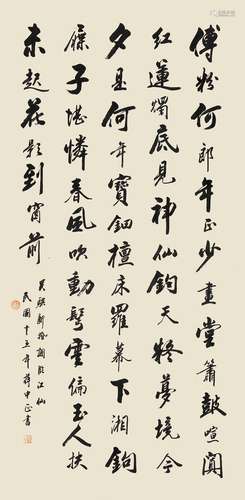 傅粉何郎年正少畫堂簫鼓喧闐
紅蓮燭底見神仙鈞天終夢境今
夕是何年寶鈿檀床羅幕下湘鉤
屧子堪憐春風吹動鬢雲偏玉人扶
未起花影到窗前
新婚調臨江仙
民國十五年蔣中正書